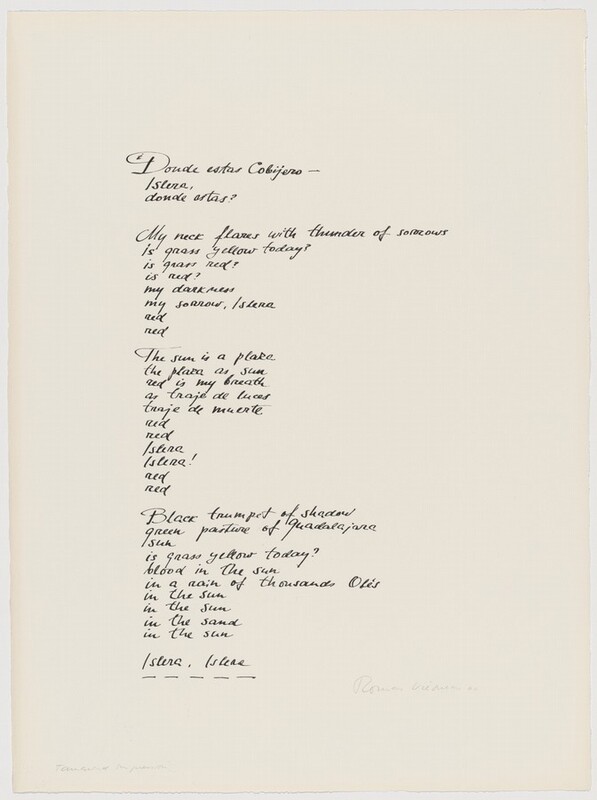 Donde estas Cobijero —
Islera,
donde estas?
My neck flares with thunder of sorrows
Is grass yellow today?
is grass red?
is red?
my darkness
my sorrow, Islera
red
red
The sun is a plaza
the plaza as sun
red is my breath
as traje de luces
traje de muerte
red
red
Islera
Islera!
red
red
Black trumpet of shadow
green pasture of Guadalajara
sun
is grass yellow today?
blood in the sun
in a rain of thousands Olés
in the sun
in the sun
in the sand
in the sun
Islera, Islera
Roman